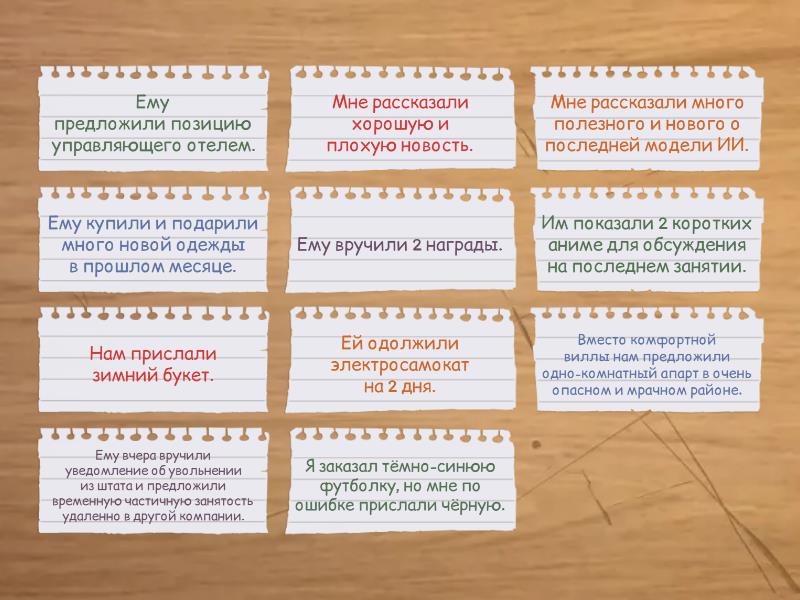 Ему
предложили позицию
управляющего отелем.
Мне рассказали
хорошую и
плохую новость.
Мне рассказали много
полезного и нового о
последней модели ИИ.
Ему купили и подарили
много новой одежды
в прошлом месяце.
Ему вручили 2 награды.
Им показали 2 коротких
аниме для обсуждения
на последнем занятии.
Нам прислали
зимний букет.
Ей одолжили
электросамокат
на 2 дня.
Вместо комфортной
виллы нам предложили
одно-комнатный апарт в очень
опасном и мрачном районе.
Ему вчера вручили
уведомление об увольнении
из штата и предложили
временную частичную занятость
удаленно в другой компании.
Я заказал тёмно-синюю
футболку, но мне по
ошибке прислали чёрную.